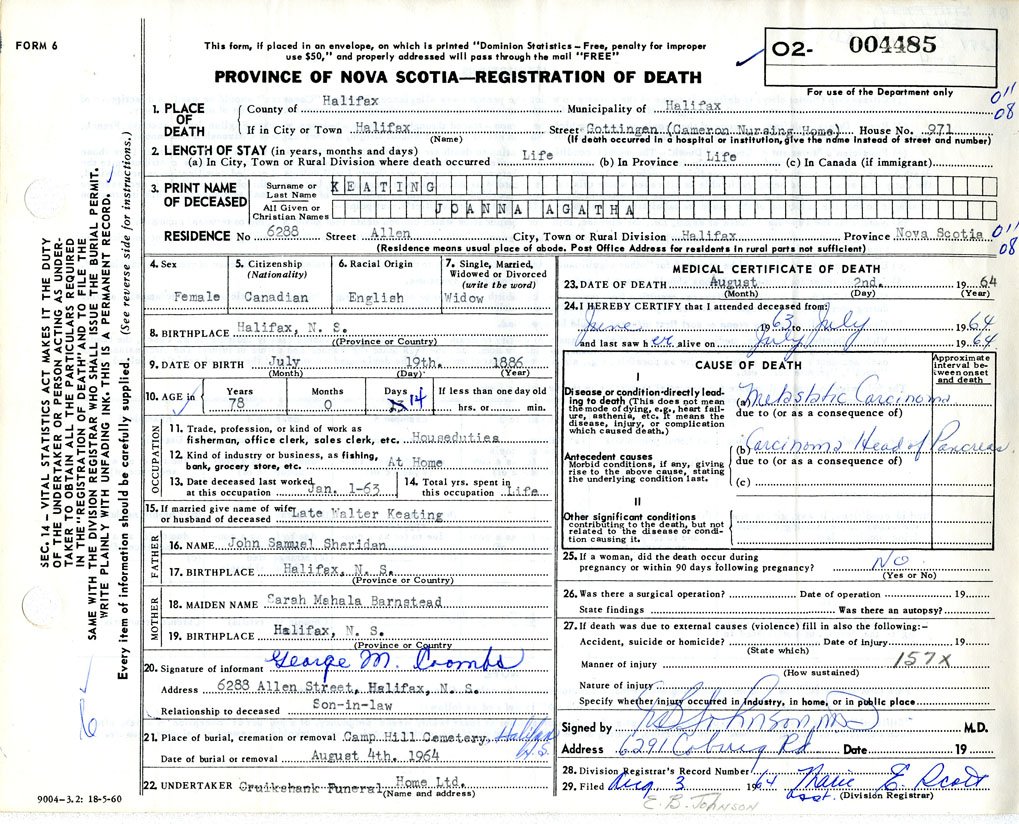 FORM 6
This form, if placed in an envelope, on which is printed "Dominion Statistics – Free, penalty for improper
use $50," and properly addressed will pass through the mail "FREE"
PROVINCE OF NOVA SCOTIA—REGISTRATION OF DEATH
O2- 004485
For use of the Department only
011
08
1. PLACE OF DEATH
County of Halifax Municipality of Halifax
If in City or Town Halifax (Name) Street Gottingen (Cameron Nursing Home) House No. 971
(If death occurred in a hospital or institution, give the name instead of street and number)
2. LENGTH OF STAY (in years, months and days)
(a) In City, Town or Rural Division where death occurred Life (b) In Province Life (c) In Canada (if immigrant)
3. PRINT NAME OF DECEASED
Surname or Last Name KEATING
All Given or Christian Names JOANNA AGATHA
RESIDENCE No 6288 Street Allen City, Town or Rural Division Halifax Province Nova Scotia 011
08
(Residence means usual place of abode. Post Office Address for residents in rural parts not sufficient)
4. Sex Female
5. Citizenship (Nationality) Canadian
6. Racial Origin English
7. Single, Married, Widowed or Divorced (write the word) Widow
8. BIRTHPLACE Halifax, N. S.
(Province or Country)
9. DATE OF BIRTH July 19th. 1886
(Month) (Day) (Year)
10. AGE in Years 78 Months 0 Days 14 If less than one day old hrs. or min.
OCCUPATION
11. Trade, profession, or kind of work as
fisherman, office clerk, sales clerk, etc. Houseduties
12. Kind of industry or business, as fishing,
bank, grocery store, etc. At Home
13. Date deceased last worked
at this occupation Jan. 1-63
14. Total yrs. spent in
this occupation Life
15. If married give name of wife
or husband of deceased Late Walter Keating
FATHER
16. NAME John Samuel Sheridan
17. BIRTHPLACE Halifax, N. S.
(Province or Country)
MOTHER
18. MAIDEN NAME Sarah Mahala Barnstead
19. BIRTHPLACE Halifax, N. S.
(Province or Country
20. Signature of informant George M. Coombs
Address 6288 Allen Street, Halifax, N. S.
Relationship to deceased Son-in-law
21. Place of burial, cremation or removal Camp Hill Cemetery, Halifax N.S.
Date of burial or removal August 4th. 1964
22. UNDERTAKER Cruikshank Funeral Home Ltd.
(Name and address)
9004–3.2: 18-5-60
MEDICAL CERTIFICATE OF DEATH
23. DATE OF DEATH August 2nd. 1964
(Month) (Day) (Year)
24. I HEREBY CERTIFY that I attended deceased from:
June 1963 to July 1964
and last saw her alive on July 1964
CAUSE OF DEATH
Approximate interval between onset and death
I
Disease or condition directly leading to death (This does not mean the mode of dying, e.g., heart failure, asthenia, etc. It means the disease, injury, or complication which caused death.)
(a) Metastatic Carcinoma
due to (or as a consequence of)
(b) Carcinoma Head of Pancreas.
due to (or as a consequence of)
(c)
Antecedent causes
Morbid conditions, if any, giving rise to the above cause, stating the underlying condition last.
II
Other significant conditions
contributing to the death, but not related to the disease or condition causing it.
25. If a woman, did the death occur during
pregnancy or within 90 days following pregnancy? No
(Yes or No)
26. Was there a surgical operation? Date of operation 19
State findings Was there an autopsy?
27. If death was due to external causes (violence) fill in also the following:–
Accident, suicide or homicide? Date of injury 19
(State which)
Manner of injury 157X
(How sustained)
Nature of injury
Specify whether injury occurred in industry, in home, or in public place
Signed by Johnson M.D. M.D.
Address 6291 Coburg Rd Date 19
28. Division Registrar's Record Number
29. Filed Aug. 3 1964 Marie E. Scott
Asst. (Division Registrar)
E. B. JOHNSON
SEC. 14 – VITAL STATISTICS ACT MAKES IT THE DUTY
OF THE UNDERTAKER OR PERSON ACTING AS UNDER-
TAKER TO OBTAIN ALL THE PARTICULARS REQUIRED
IN THE "REGISTRATION OF DEATH" AND TO FILE THE
SAME WITH THE DIVISION REGISTRAR WHO SHALL ISSUE THE BURIAL PERMIT.
WRITE PLAINLY WITH UNFADING INK. THIS IS A PERMANENT RECORD.
Every item of information should be carefully supplied. (See reverse side for instructions.)